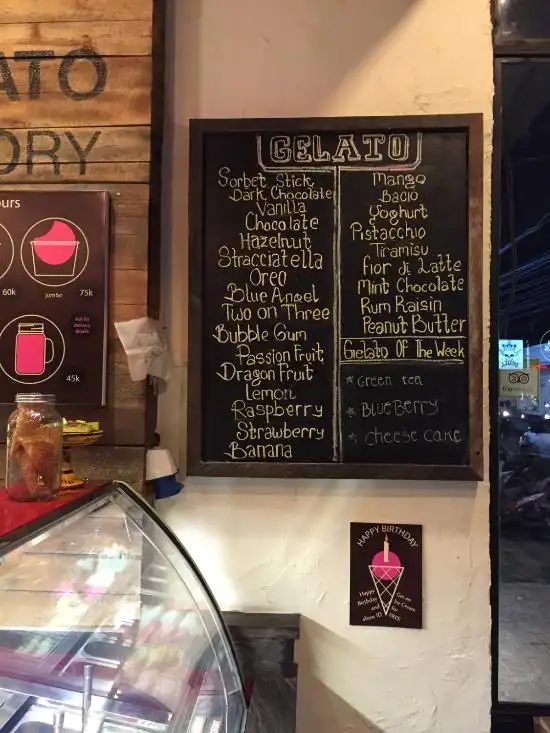 ATO
ORY
ours
60k
jumbo
75k
Ask for
delivery
details
45k
GELATO
Sorbet Stick
Dark Chocolate
Vanilla
Chocolate
Hazelnut
Stracciatella
Oreo
Blue Angel
Two on Three
Bubble Gum
Passion Fruit
Dragon Fruit
Lemon
Raspberry
Strawberry
Banana
Mango
Bacio
Yoghurt
Pistacchio
Tiramisu
Fior di Latte
Mint Chocolate
Rum Raisin
Peanut Butter
Gelato Of The Week
* Green tea
* BlueBerry
* cheese cake
HAPPY BIRTHDAY
Happy
Birthday
and
show ID
Get an
Ice Cream
for
FREE